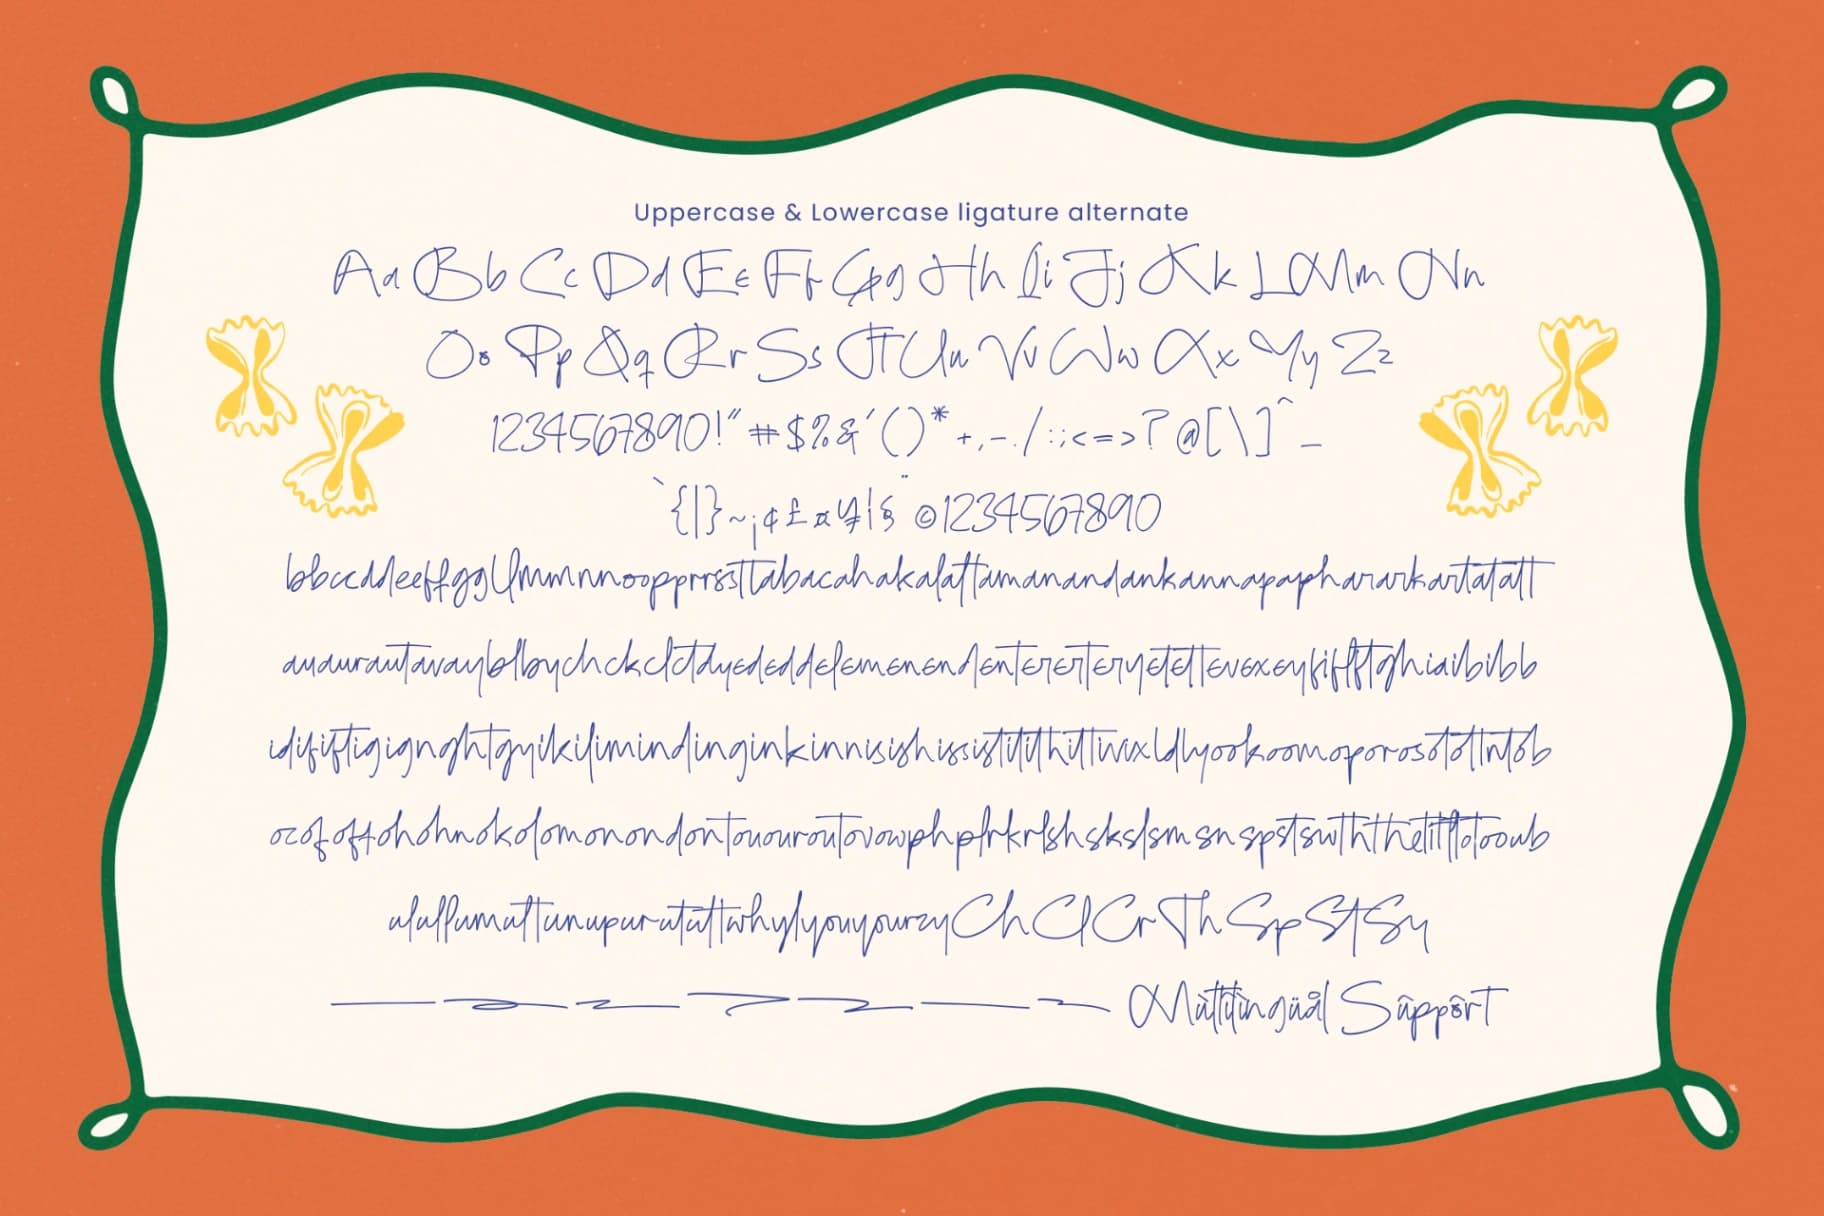 Uppercase & Lowercase ligature alternate
Aa Bb Cc Dd Ee Ff Gg Hh Ii Jj Kk L Mm Nn
Oo Pp Qq Rr Ss T Uu Vv Ww Xx Yy Zz
1234567890!"#$%&'()*+,-./:;<=>?@[\]^_
`{|}~¡¢£¤¥¦§¨©1234567890
bbccddeeffggllmmnnoopprrssttabacahakalattamanandankannapapharark​artatatt
auaurautavayblbychckclctdyededdelemenendentererteryetettevexeyfifffftghiaibibb
idififtigignghtgyikilimindinginkinnisishissistitithittivixldlyookoomoporosototttntob
ocofoffohohnokolomonondontououroutovowphplrkrlshskslsmsnspstswththetitttotooub
ulullumuttunupurututtwhylyouyourzyChClCrThSpStSy
Multilingual Support